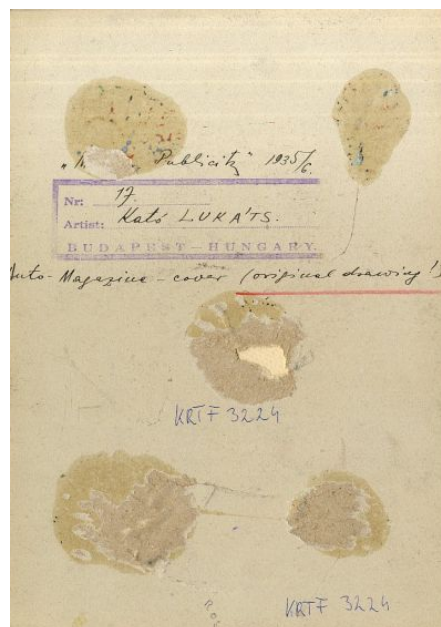 Publicity" 1935/6.
Nr: 17.
Artist: Kató LUKÁTS.
BUDAPEST - HUNGARY.
Auto-Magazine - cover (original drawing!)
KRTF 3224
KRTF 3224